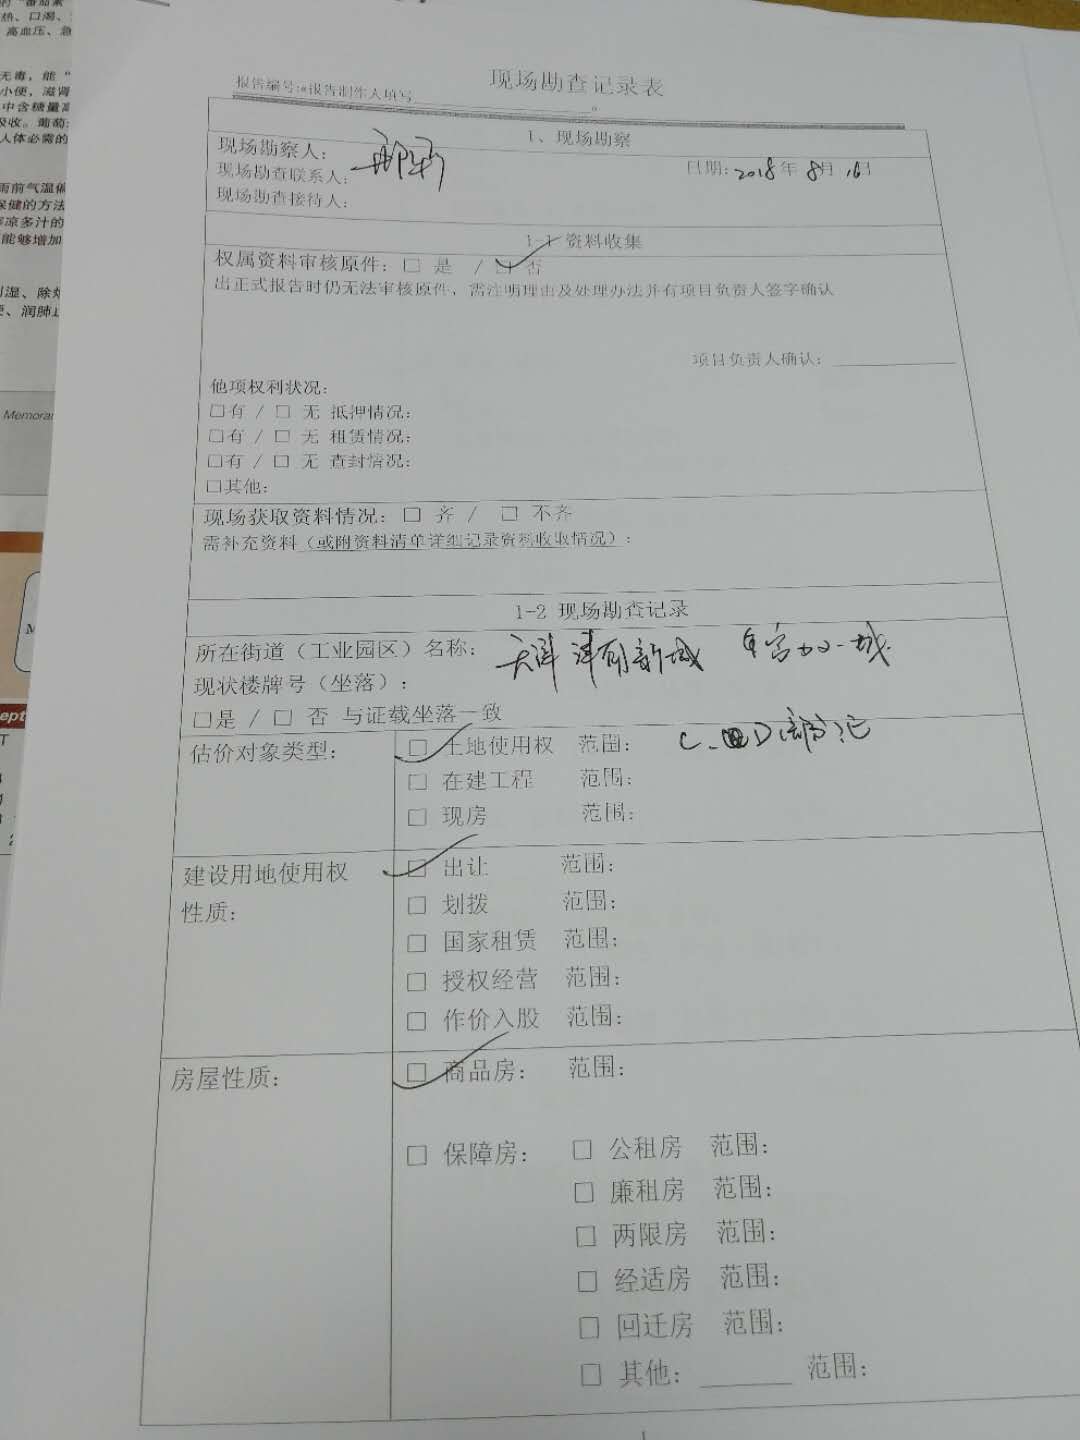 现场勘查记录表
报告编号:报告制作人填写
1、现场勘察
现场勘察人:
现场勘查联系人:
日期: 2018年 8月 16日
现场勘查接待人:
1-1 资料收集
权属资料审核原件: □ 是 / □ 否
出正式报告时仍无法审核原件,需注明理由及处理办法并有项目负责人签字确认
项目负责人确认:
他项权利状况:
□有 / □ 无 抵押情况:
□有 / □ 无 租赁情况:
□有 / □ 无 查封情况:
□其他:
现场获取资料情况: □ 齐 / □ 不齐
需补充资料(或附资料清单详细记录资料收取情况):
1-2 现场勘查记录
所在街道(工业园区)名称: 天津
现状楼牌号(坐落):
□是 / □ 否 与证载坐落一致
估价对象类型: □ 土地使用权 范围: C、D
□ 在建工程 范围:
□ 现房 范围:
建设用地使用权
性质:
□ 出让 范围:
□ 划拨 范围:
□ 国家租赁 范围:
□ 授权经营 范围:
□ 作价入股 范围:
房屋性质: □ 商品房: 范围:
□ 保障房: □ 公租房 范围:
□ 廉租房 范围:
□ 两限房 范围:
□ 经适房 范围:
□ 回迁房 范围:
□ 其他: 范围:
1
高血压、急
无毒,能“
小便,滋肾
中含糖量高
人体必需的
雨前气温偏
保健的方法
凉多汁的
能够增加
、润肺止